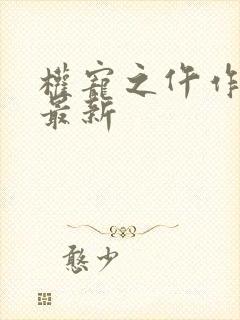 權寵之仵作
最新
憨少